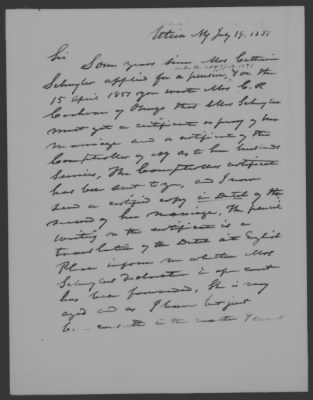 Utica Ny July 19.
Sir
Some years since Mrs Catherine
Schuyler applied for a pension, & on the
15 April 1851 you wrote Mrs C. R.
of Oswego that Mrs Schuyler
must get a certificate or proof of her
marriage and a certificate of the
Comptroller of as to her husbands
Service, The Comptrollers certificate
has been sent to you, and I now
send a certified copy in Dutch of the
record of her marriage. The pencil
writing on the certificate is a
translation of the Dutch into English
Please inform me whether Mrs
Schuylers declaration in open court
has been forwarded, She is very
aged and as I have but just
been consulted in the matter I